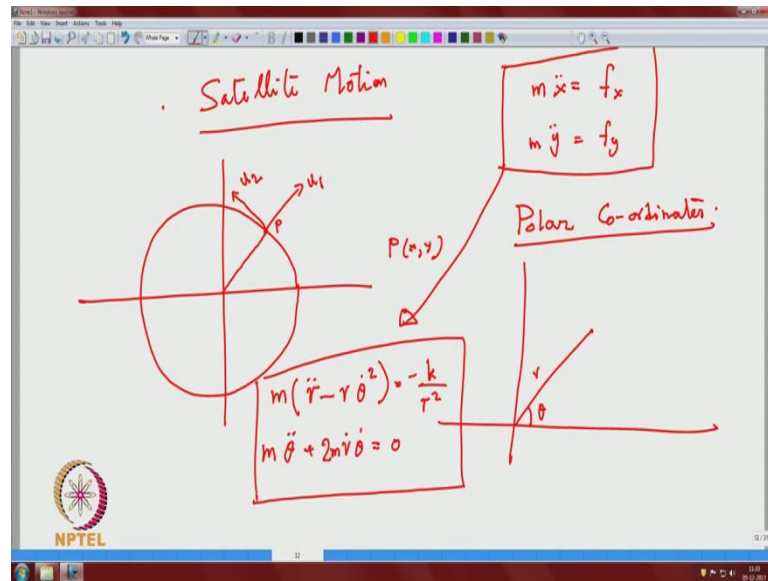 Note1 - Windows Journal
File Edit View Insert Actions Tools Help
Whole Page
Satellite Motion
m ẍ = f_x
m ÿ = f_y
Polar Co-ordinates.
u2
u1
P
P(x,y)
m(r̈ - r θ̇²) = -k/r²
m θ̈ + 2m ṙ θ̇ = 0
r
θ
NPTEL
12
12/31
11:10
05-12-2013